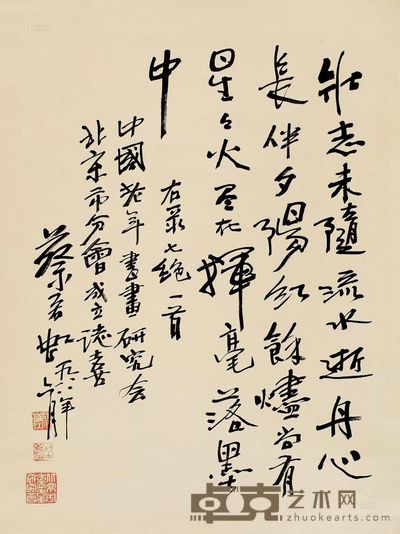 壯志未隨流水逝丹心
長伴夕陽紅餘燼尚有
星々火盡在揮毫落墨
中
右录七绝一首
中國老年書畫研究会
北京市分會成立誌喜
蔡若虹
卓克艺术网
zhuokearts.com